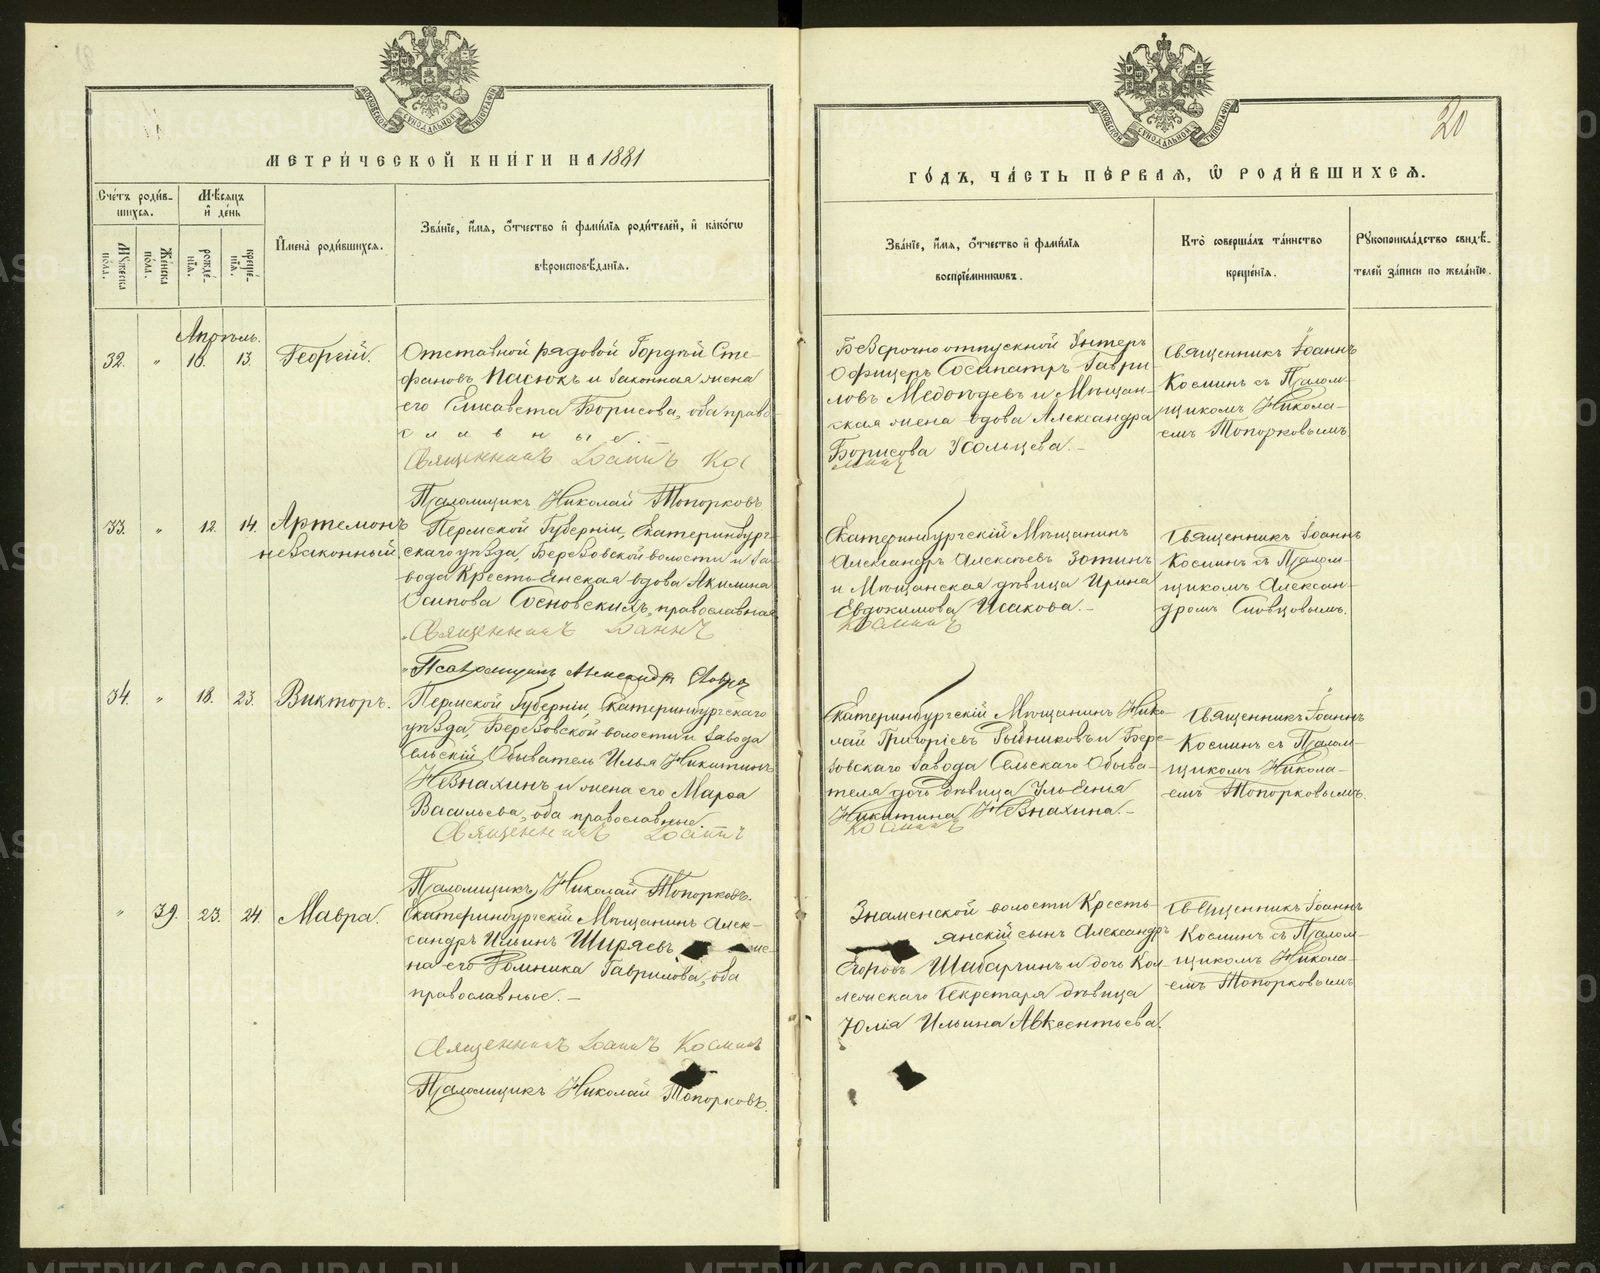 МЕТРИ́ЧЕСКОЙ КНИ́ГИ НА 1881
Сче́тъ роди́в-
шихся.
Мѣ́сяцъ
и҆ де́нь
Мꙋ́жеска
по́ла.
Же́нска
по́ла.
рожде́-
нїѧ.
креще́-
нїѧ.
И҆мена̀ роди́вшихсѧ.
Зва́нїе, и҆́мѧ, ѻ҆́тчество и҆ фами́лїѧ роди́телей, и҆ како́гѡ
вѣроисповѣ́данїѧ.
Апрѣль.
32. " 10. 13. Георгій.
Отставной рядовой Гордѣй Сте-
фановъ Пасюкъ и законная жена
его Елисавета Борисова, оба право-
славные.
Священникъ Іоаннъ Кос
Псаломщикъ Николай Топорковъ
33. " 12. 14. Артемонъ
незаконный
Пермской Губерніи, Екатеринбург-
скаго уѣзда, Березовской волости и за-
вода Крестьянская вдова Акилина
Осипова Сосновскихъ, православная
Священникъ Іоаннъ
Псаломщикъ Александръ Словцовъ
34. " 18. 23. Викторъ.
Пермской Губерніи, Екатеринбургскаго
уѣзда, Березовской волости и завода
Сельскій Обыватель Илья Никитинъ
Незнахинъ и жена его Марѳа
Васильева, оба православные.
Священникъ Іоаннъ
Псаломщикъ Николай Топорковъ.
" 39. 23. 24. Мавра.
Екатеринбургскій Мѣщанинъ Алек-
сандръ Ильинъ Ширяевъ же-
на его Домника Гаврилова, оба
православные. –
Священникъ Іоаннъ Косминъ
Псаломщикъ Николай Топорковъ.
20
ГО́ДЪ, ЧА́СТЬ ПЕ́РВАѦ, Ѽ РОДИ́ВШИХСѦ.
Зва́нїе, и҆́мѧ, ѻ҆́тчество и҆ фами́лїѧ
воспрїе́мникѡвъ.
Кто̀ соверша́лъ та́инство
креще́нїѧ.
Рꙋкоприкла́дство свидѣ́-
телей за́писи по жела́нїю.
Безсрочноотпускной Унтеръ
Офицеръ Сосипатръ Гаври-
ловъ Медвѣдевъ и Мѣщан-
ская жена вдова Александра
Борисова Усольцева. –
минъ
Священникъ Іоаннъ
Косминъ съ Псалом-
щикомъ Никола-
емъ Топорковымъ
Екатеринбургскій Мѣщанинъ
Александръ Алексѣевъ Зотинъ
и Мѣщанская дѣвица Ирина
Евдокимова Исакова. –
Косминъ
Священникъ Іоаннъ
Косминъ съ Псалом-
щикомъ Алексан-
дромъ Словцовымъ.
Екатеринбургскій Мѣщанинъ Нико-
лай Григорьевъ Рыбниковъ и Бере-
зовскаго завода Сельскаго Обыва-
теля дочь дѣвица Ульянія
Никитина Незнахина. –
Косминъ
Священникъ Іоаннъ
Косминъ съ Псалом-
щикомъ Никола-
емъ Топорковымъ.
Знаменской волости Кресть-
янскій сынъ Александръ
Егоровъ Шабарчинъ и дочь Кол-
лежскаго Секретаря дѣвица
Юлія Ильина Авксентьева.
Священникъ Іоаннъ
Косминъ съ Псалом-
щикомъ Никола-
емъ Топорковымъ
METRIKI.GASO-URAL.RU